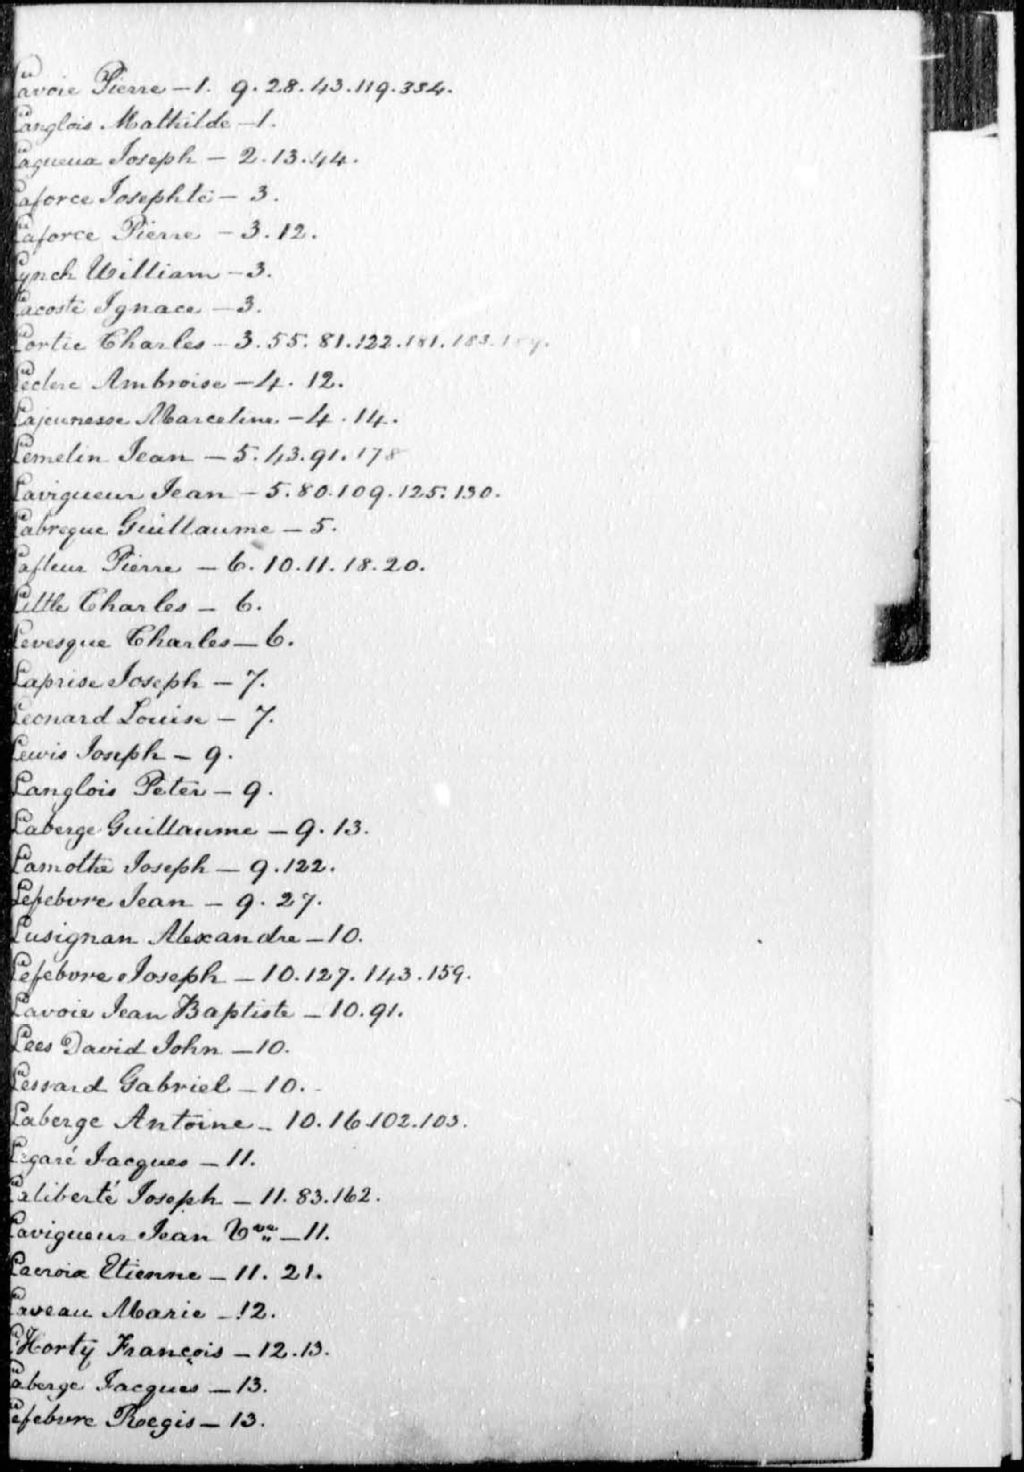 Lavoie Pierre — 1. 9. 28. 43. 119. 354.
Langlois Mathilde — 1.
Lagueux Joseph — 2. 13. 44.
Laforce Josephte — 3.
Laforce Pierre — 3. 12.
Lynch William — 3.
Lacoste Ignace — 3.
Lortie Charles — 3. 55. 81. 122. 181. 183.
Leclerc Ambroise — 4. 12.
Lajeunesse Marceline — 4. 14.
Lemelin Jean — 5. 43. 91. 178
Lavigueur Jean — 5. 80. 109. 125. 130.
Labreque Guillaume — 5.
Lafleur Pierre — 6. 10. 11. 18. 20.
Little Charles — 6.
Levesque Charles — 6.
Laprise Joseph — 7.
Leonard Louise — 7.
Lewis Joseph — 9.
Langlois Peter — 9.
Laberge Guillaume — 9. 13.
Lamothe Joseph — 9. 122.
Lefebvre Jean — 9. 27.
Lusignan Alexandre — 10.
Lefebvre Joseph — 10. 127. 143. 159.
Lavoie Jean Baptiste — 10. 91.
Lees David John — 10.
Lessard Gabriel — 10.
Laberge Antoine — 10. 16. 102. 103.
Legaré Jacques — 11.
Laliberté Joseph — 11. 83. 162.
Lavigueur Jean Vve — 11.
Lacroix Etienne — 11. 21.
Laveau Marie — 12.
L'Horty François — 12. 13.
Laberge Jacques — 13.
Lefebvre Roegis — 13.